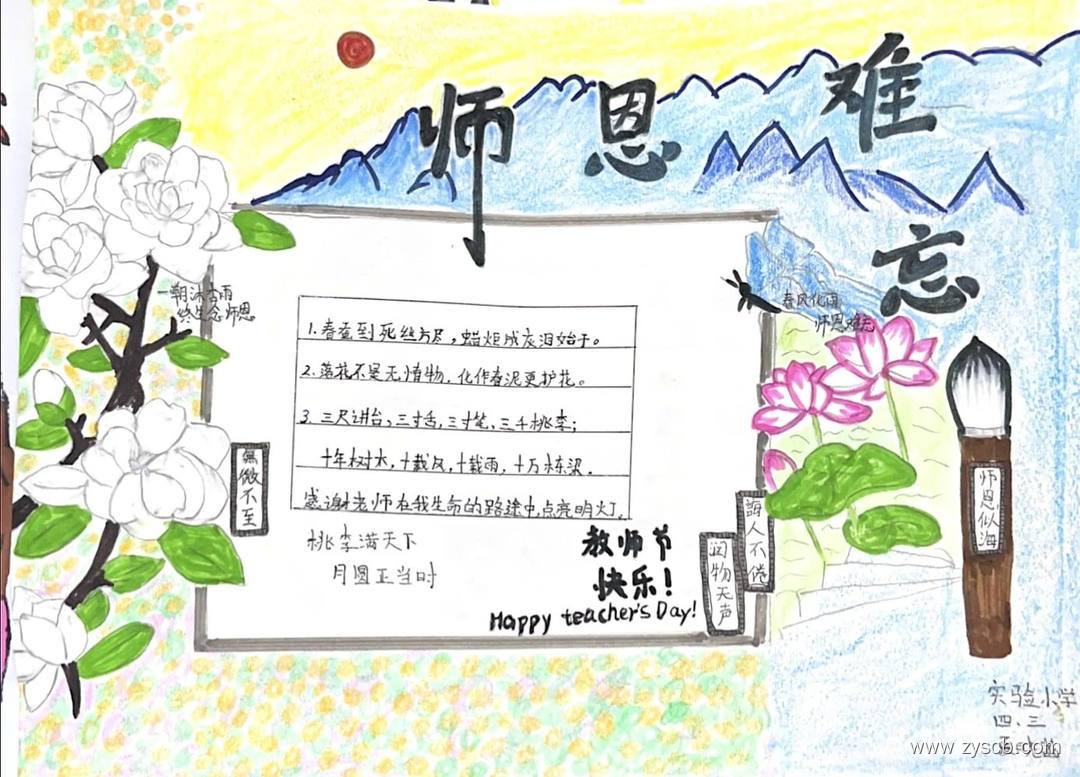 师恩难忘
一朝沐杏雨
终生念师恩
春风化雨
师恩难忘
1.春蚕到死丝方尽，蜡炬成灰泪始干。
2.落花不是无情物，化作春泥更护花。
3.三尺讲台，三寸舌，三寸笔，三千桃李；
十年树木，十载风，十载雨，十万栋梁。
感谢老师在我生命的路途中，点亮明灯。
無微不至
桃李满天下
月圆正当时
教师节
快乐！
Happy teacher's Day!
润物无声
誨人不倦
师恩似海
实验小学
四.三
www.zyscb.com